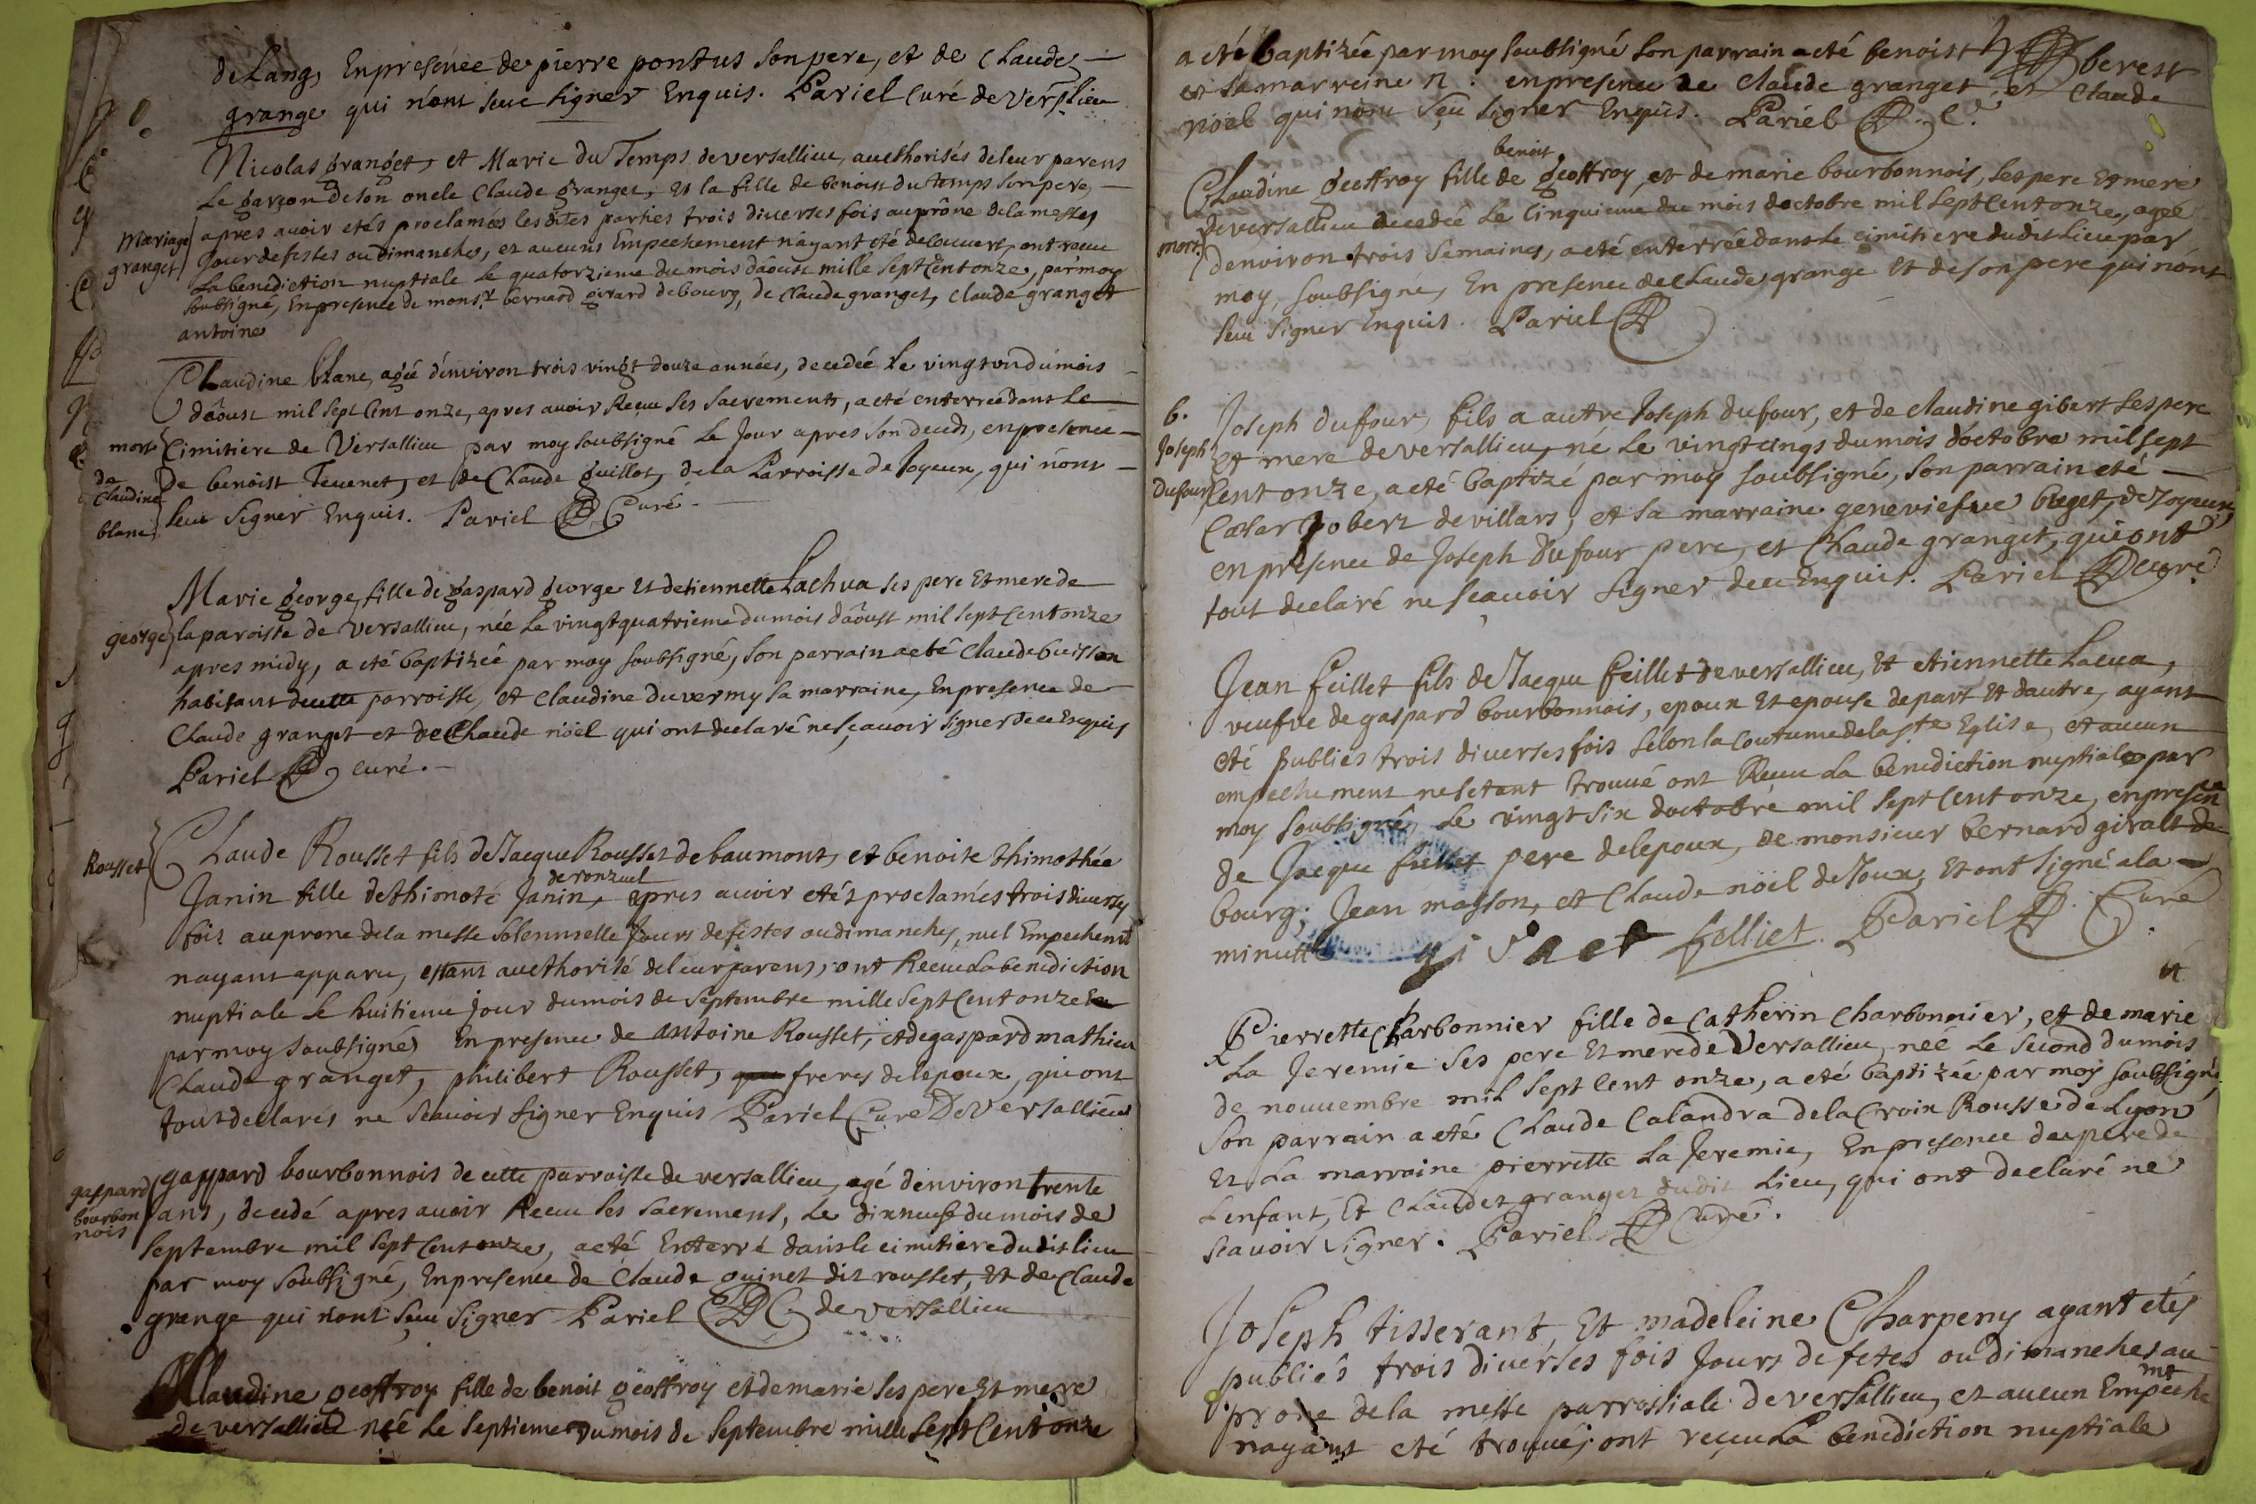 de Lang, Enpresence de pierre pontus Son pere, et de Claude
grange qui n'ont sceu signer Enquis. Pariel Curé de Versslieu
Nicolas granget, et Marie du Temps de versallieu, aucthorisés de leur parens
Le garçon de son oncle Claude granget, et la fille de benoist du temps son pere,
Mariage granget
apres avoir etés proclamés lesdites parties trois diverses fois au prône de la messe,
Jour de festes ou dimanches, et aucuns Empechement n'ayant eté decouvert, ont receu
La benediction nuptiale Le quatorzieme du mois d'aoust mille Sept Cent onze, par moy
soubsigné, Enpresence de mons.r bernard girard de bourg, de Claude granget, Claude granget
antoine
Claudine blanc, agée d'environ trois vingt douze années, decedée Le vingt un du mois
d'aoust mil sept Cent onze, apres avoir Receu Ses Sacrements, a eté enterrée dans Le
mort de Claudine blanc
Cimitiere de Versallieu par moy soubsigné Le Jour apres son deceds, en presence
De benoist Tevenet, et de Claude guillot, de la Parroisse de Joyeux, qui n'ont
sceu Signer Enquis. Pariel Curé
Marie george, fille de gaspard george Et detiennette Lachua ses pere Et mere de
george
la paroisse de Versallieu, née Le vingt quatrieme du mois d'aoust mil sept Cent onze
apres midy, a eté baptizée par moy soubsigné, Son parrain a eté Claude buisson
habitant de cette parroisse, et Claudine duvermy sa marraine, Enpresence de
Claude granget et de Claude nöel qui ont declaré ne sçavoir signer de ce Enquis
Pariel curé.
Rousset
Claude Rousset fils de Jacque Rousset de baumont, et benoite thimothée
Janin fille de thimoté Janin, de ronzuel apres avoir etés proclamés trois diverses
fois au prone de la messe Solennelle Jours de festes ou dimanches, nul Empechemt
nayant apparu, estant aucthorisé de leur parens, ont Receu La benediction
nuptiale Le huitieme jour du mois de Septembre mille Sept Cent onze
par moy Soubsigné Enpresence de antoine Rousset, et de gaspard mathieu
Claude granget, philibert Rousset, freres de l'epoux, qui ont
tout declarés ne Scavoir Signer Enquis Pariel Curé De Versallieu
gaspard bourbonnois
gaspard bourbonnois de cette parroisse de versallieu, agé d'environ trente
ans, decedé apres avoir Receu Ses Sacremens, Le dixneuf du mois de
Septembre mil Sept Cent onze, a eté Enterré dans le cimitiere dudit lieu
par moy soubsigné, Enpresence de Claude guinet dit rousset, Et de Claude
grange qui n'ont sceu signer Pariel C de versallieu
Claudine geoffroy fille de benoit geoffroy et de marie ses pere Et mere
de versallieu née Le Septieme du mois de Septembre mille Sept Cent onze
a eté baptizée par moy soubsigné Son parrain a eté benoist berest
et Sa marreine n . enpresence de Claude granget, et Claude
noel qui nont Sceu signer Enquis. Pariel C.
Claudine geoffroy fille de benoit geoffroy, et de marie bourbonnois, ses pere Et mere
de versallieu decedée Le Cinquieme du mois doctobre mil Sept Cent onze, agée
mort.
d'environ trois Semaines, a eté enterrée dans Le cimitiere dudit Lieu par
moy, Soubsigné, Enpresence de Claude grange Et de son pere qui n'ont
sceu signer Enquis. Pariel
b.
Joseph dufour
Joseph dufour, fils a autre Joseph dufour, et de claudine gibert ses pere
et mere de versallieu, né Le vingt cinqs du mois d'octobre mil sept
Cent onze, a eté baptizé par moy soubsigné, Son parrain eté
Cæsar Jobert de villars, et sa marraine geneviefve buget, de Joyeux,
en presence de Joseph Dufour pere, et Claude granget, qui ont
tout declaré ne sçauoir signer de ce Enquis. Pariel curé
Jean feillet fils de Jacque feillet de versallieu, Et etiennette Lacua,
veufve de gaspard bourbonnois, epoux Et epouse de part Et d'autre, ayant
eté publiés trois diverses fois Selon la Coutume de la ste Eglise, et aucun
empechement ne setant trouvé ont Receu La benediction nuptiale par
moy soubsigné, Le vingt six doctobre mil Sept Cent onze, en presen
de Jacque feillet pere de lepoux, de monsieur bernard giralt de
bourg, Jean masson, et Claude nöel de Joux, Et ont signé a la
minutte felliet Pariel Curé
Pierrette Charbonnier fille de Catherin Charbonnier, et de marie
La Jeremie Ses pere Et mere de Versallieu, née Le Second du mois
de nouvembre mil Sept Cent onze, a eté baptizée par moy soubsigné,
Son parrain a eté Claude Calandra de la Croix Rousse de Lyon
Et La marraine pierrette La Jeremie, Enpresence du pere de
Lenfant, Et Claude granget dudit Lieu, qui ont declaré ne
scavoir Signer. Pariel Curé.
Joseph tisserant, Et madeleine Charpeny ayant etés
publiés trois diverses fois Jours de fetes ou dimanches au
prone de la messe parrossiale de versallieu, et aucun Empeche mt
nayant eté trouvé, ont receu La benediction nuptiale